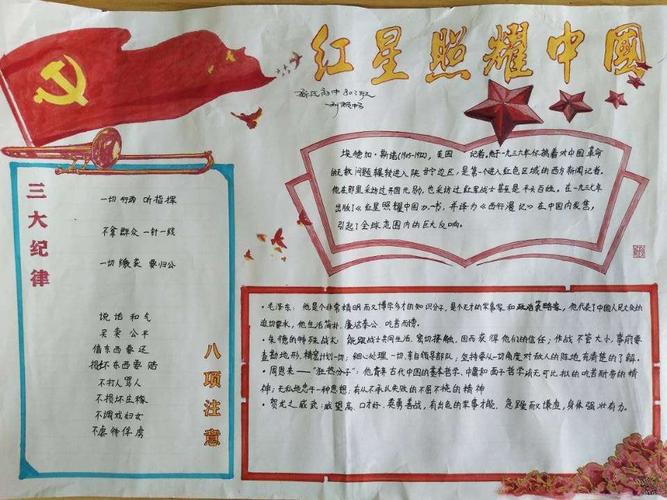 红星照耀中国
三大纪律
一切行动 听指挥
不拿群众 一针一线
一切缴获 要归公
说话和气
买卖公平
借东西要还
损坏东西要赔
不打人骂人
不损坏庄稼
不调戏妇女
不虐待俘虏
八项注意
埃德加·斯诺(1905-1972),美国 记者。他于一九三六年怀揣着对中国革命
的无数问题辗转进入陕甘宁边区,是第一个进入红色区域的西方新闻记者。
他在那里采访过开国元勋,也采访过红星战士甚至是平头百姓。在一九三七年
出版了《红星照耀中国》一书,并译为《西行漫记》在中国内发售,
引起了全球范围内的巨大反响。
·毛泽东:他是个非常精明而又博学多才的知识分子,是个天才的军事家和政治策略家,他代表了中国人民大众的
迫切要求,他生活简朴,廉洁奉公、吃苦耐劳。
·朱德的特殊战术:能跟战士共同生活,密切接触,因而获得他们的信任;作战不管大小,事前要
查勘地形,精密计划一切,细心处理一切,亲自领导部队,坚持要从一切角度对敌人的阵地先有清楚的了解。
·周恩来——"狂热分子":他背弃古代中国的基本哲学,中庸和面子哲学;有无可比拟的吃苦耐劳的精
神;无私地忠于一种思想,有从不承认失败的不屈不挠的精神
·贺龙之威武:威望高,口才好,英勇善战,有出色的军事才能,急躁而又谦虚,身体强壮有力。